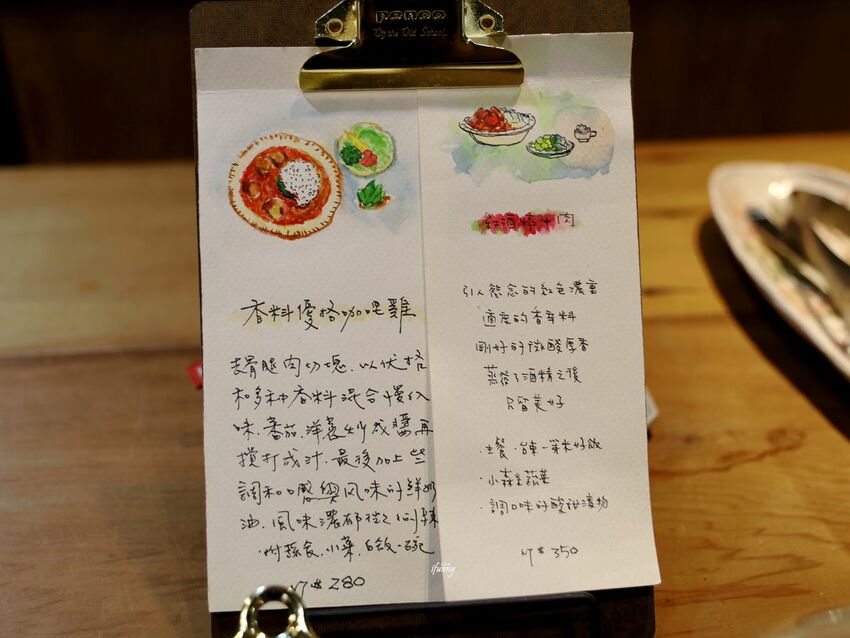 penco
By the Old School.
香料優格咖哩雞
去骨腿肉切塊.以优格
和多种香料混合慢入
味.蕃茄.洋蔥炒成醬再
攪打成汁.最後加上些
調和口感與风味的鮮奶
油.風味濃郁微辣
.附蔬食.小菜.白飯一碗
NT$ 280
紅酒燉牛肉
引人慾念的紅色濃重
適度的香辛料
剛好的微酸厚香
蒸發了酒精之後
只留美好
.主餐.台東一等米好飯
.小森生蔬菜
.調口味的酸甜漬物
NT$ 350
ifunny